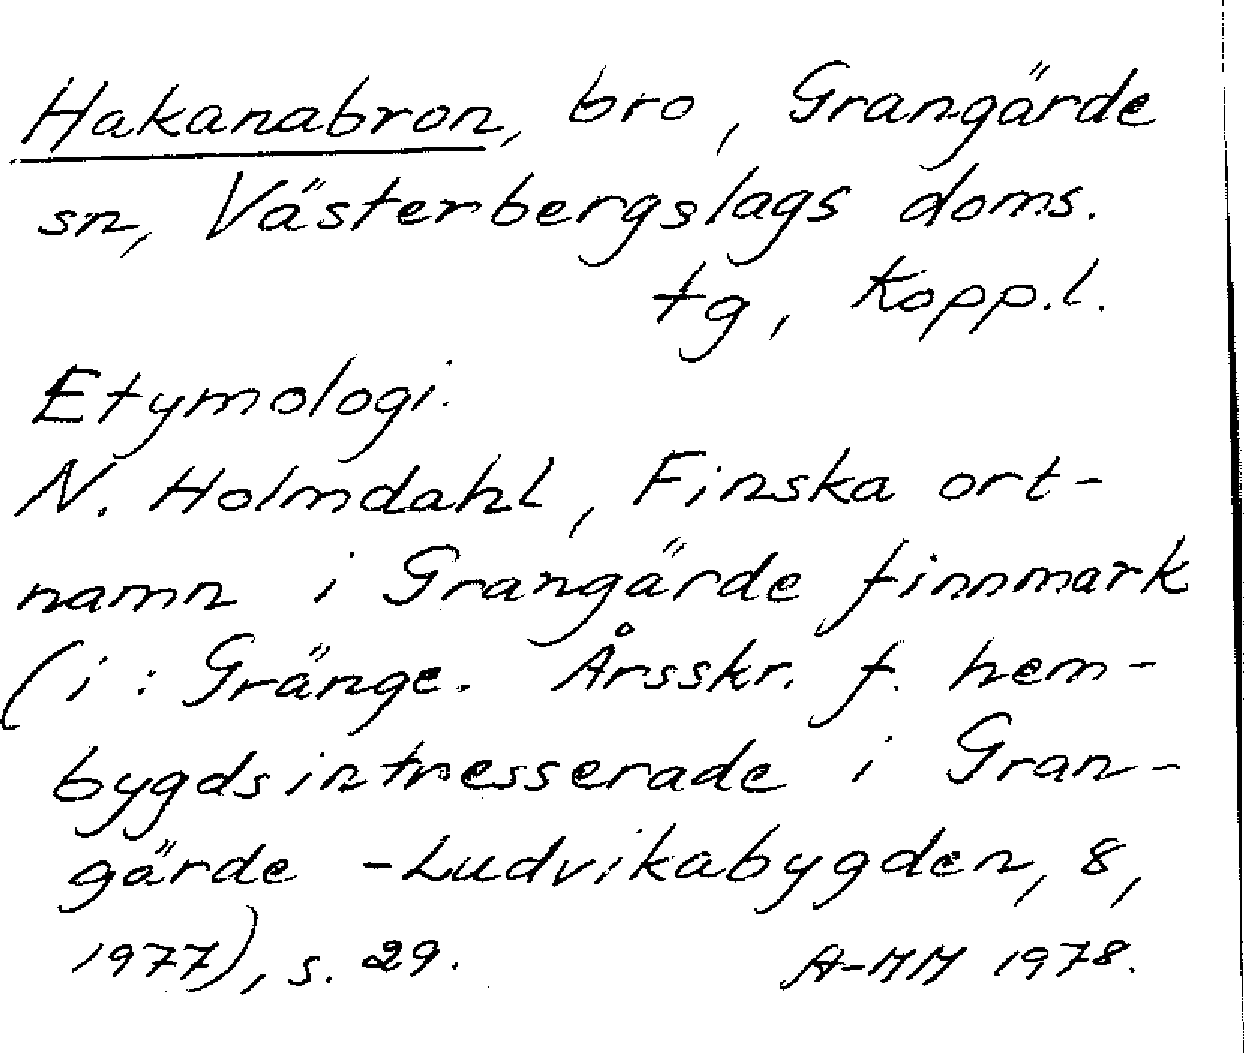 Hakanabron, bro, Grangärde
sn, Västerbergslags doms.
tg, Kopp.l.
Etymologi.
N. Holmdahl, Finska ort-
namn i Grangärde finnmark
(i: Gränge. Årsskr. f. hem-
bygdsintresserade i Gran-
gärde -Ludvikabygden, 8,
1977), s. 29. A-MM 1978.